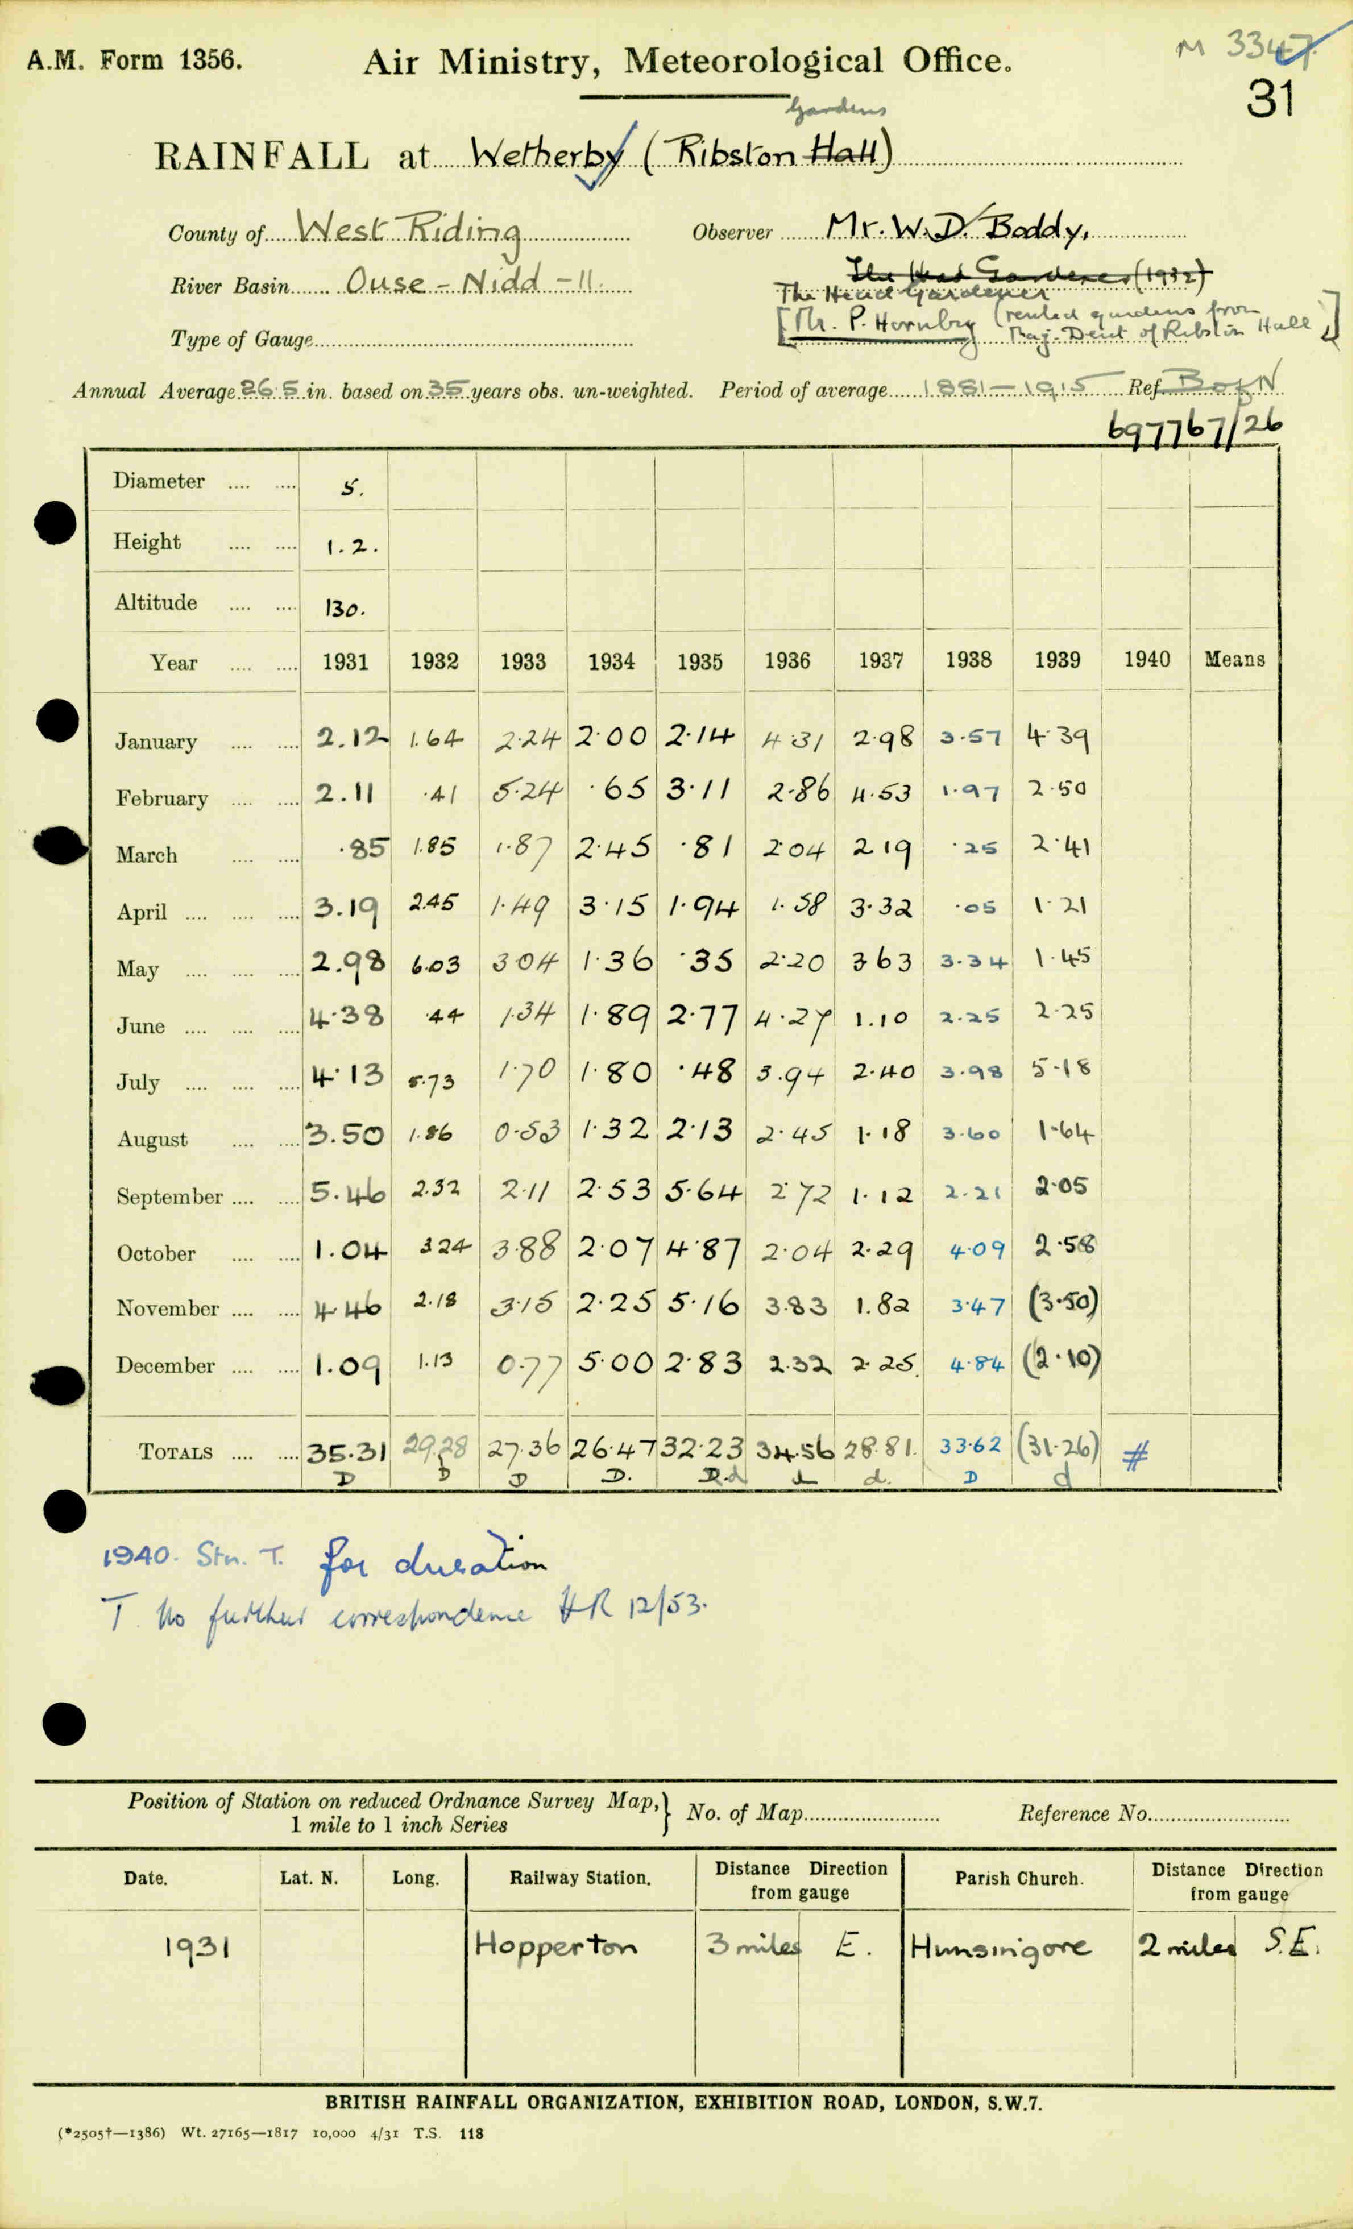 M 3347
A.M. Form 1356. Air Ministry, Meteorological Office.
31
Gardens
RAINFALL at Wetherby (Ribston Hall)
County of West Riding Observer Mr. W.D. Boddy,
The Head Gardener (1932)
River Basin Ouse - Nidd - 11. The Head Gardener
[Mr. P. Hornby (rented gardens from
Type of Gauge Maj. Dent of Ribston Hall)]
Annual Average 26.5 in. based on 35 years obs. un-weighted. Period of average 1881-1915 Ref B of N
697767/26
Diameter 5.
Height 1.2.
Altitude 130.
Year 1931 1932 1933 1934 1935 1936 1937 1938 1939 1940 Means
January 2.12 1.64 2.24 2.00 2.14 4.31 2.98 3.57 4.39
February 2.11 .41 5.24 .65 3.11 2.86 4.53 1.97 2.50
March .85 1.85 1.87 2.45 .81 2.04 2.19 .25 2.41
April 3.19 2.45 1.49 3.15 1.94 1.58 3.32 .05 1.21
May 2.98 6.03 3.04 1.36 .35 2.20 3.63 3.34 1.45
June 4.38 .44 1.34 1.89 2.77 4.27 1.10 2.25 2.25
July 4.13 5.73 1.70 1.80 .48 3.94 2.40 3.98 5.18
August 3.50 1.86 0.53 1.32 2.13 2.45 1.18 3.60 1.64
September 5.46 2.32 2.11 2.53 5.64 2.72 1.12 2.21 2.05
October 1.04 3.24 3.88 2.07 4.87 2.04 2.29 4.09 2.58
November 4.46 2.18 3.15 2.25 5.16 3.83 1.82 3.47 (3.50)
December 1.09 1.13 0.77 5.00 2.83 2.32 2.25 4.84 (2.10)
TOTALS 35.31 29.28 27.36 26.47 32.23 34.56 28.81. 33.62 (31.26) #
D D D D. D.d d d. D d
1940. Stn. T. for duration
T No further correspondence HR 12/53.
Position of Station on reduced Ordnance Survey Map, } No. of Map Reference No.
1 mile to 1 inch Series
Date. Lat. N. Long. Railway Station. Distance Direction from gauge Parish Church. Distance Direction from gauge
1931 Hopperton 3 miles E. Hunsingore 2 miles S.E.
BRITISH RAINFALL ORGANIZATION, EXHIBITION ROAD, LONDON, S.W.7.
(*2505†—1386) Wt. 27165—1817 10,000 4/31 T.S. 118